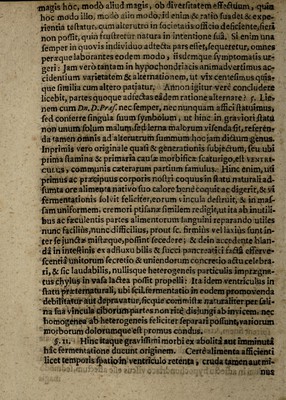 magis hoc, modò aliud magis, ob diversitatem effectuum, quin
hoc modo illo, modò alio modo: id enim & ratio suadet & expe-
rientia testatur, cum alterutro in societatis officio deficiente, fieri
non possit, quin frustretur natura in intentione suâ. Si enim una
semper in quovis individuo adfecta pars esset, sequeretur, omnes
peræque laborantes eodem modo, iisdemque symptomatis ur-
geri: Jam verò tantam in hypochondriacis animadvertimus ac-
cidentium varietatem & alternationem, ut vix centesimus quis-
que similia cum altero patiatur. Annon igitur verè concludere
licebit, partes quoque adfectas eâdem ratione alternare?
nem cum Dn. D. Præs. nec semper, nec nunquam affici statuimus,
sed conferre singula suum symbolum, ut hinc in graviori statu
non unum solum malum, sed lerna malorum visenda sit, referen-
da tamen omnia ad alternatum summum hoc jam dictum genus.
Inprimis verò originale quasi & generationis subjectum, seu ubi
prima stamina & primaria causæ morbificæ scaturigo, est VENTRI-
CULUS, communis cæterarum partium famulus. Hinc enim, uti
primus ac præcipuus corporis nostri coquus in statu naturali ad-
sumta ore alimenta nativo suo calore benè coquit ac digerit, & vi
fermentationis solvit feliciter, eorum vincula destruit, & in mas-
sam uniformem, cremori ptisanæ similem redigit, ut ita ab inutili-
bus ac fæculentis partes alimentorum sanguini reparando utiles
nunc facilius, nunc difficilius, prout sc. firmius vel laxius sunt in-
ter se junctæ mistæque, possint secedere; & dein accedente blan-
dâ in intestinis ex adfluxo bilis & succi pancreatici factâ efferve-
scentiâ unitorum secretio & uniendorum concretio actu celebra-
ri, & sic laudabilis, nullisque heterogeneis particulis imprægna-
tus chylus in vasa lactea possit propelli: Ita idem ventriculus in
statu præternaturali, ubi sc. â fermentatio in eodem promovenda
debilitatur aut depravatur, sicque commistæ naturaliter per sali-
na sua vincula ciborum partes non ritè disjungi ab invicem, nec
homogeneæ ab heterogeneis feliciter separari possunt, variorum
morbotum dolorumque est promus condus.
§. 11. Hinc itaque gravissimi morbi ex abolitâ aut imminutâ
hâc fermentatione ducunt originem. Certè alimenta afficienti
licet temporis spatio in ventriculo retenta, cruda tamen aut mi-
nus